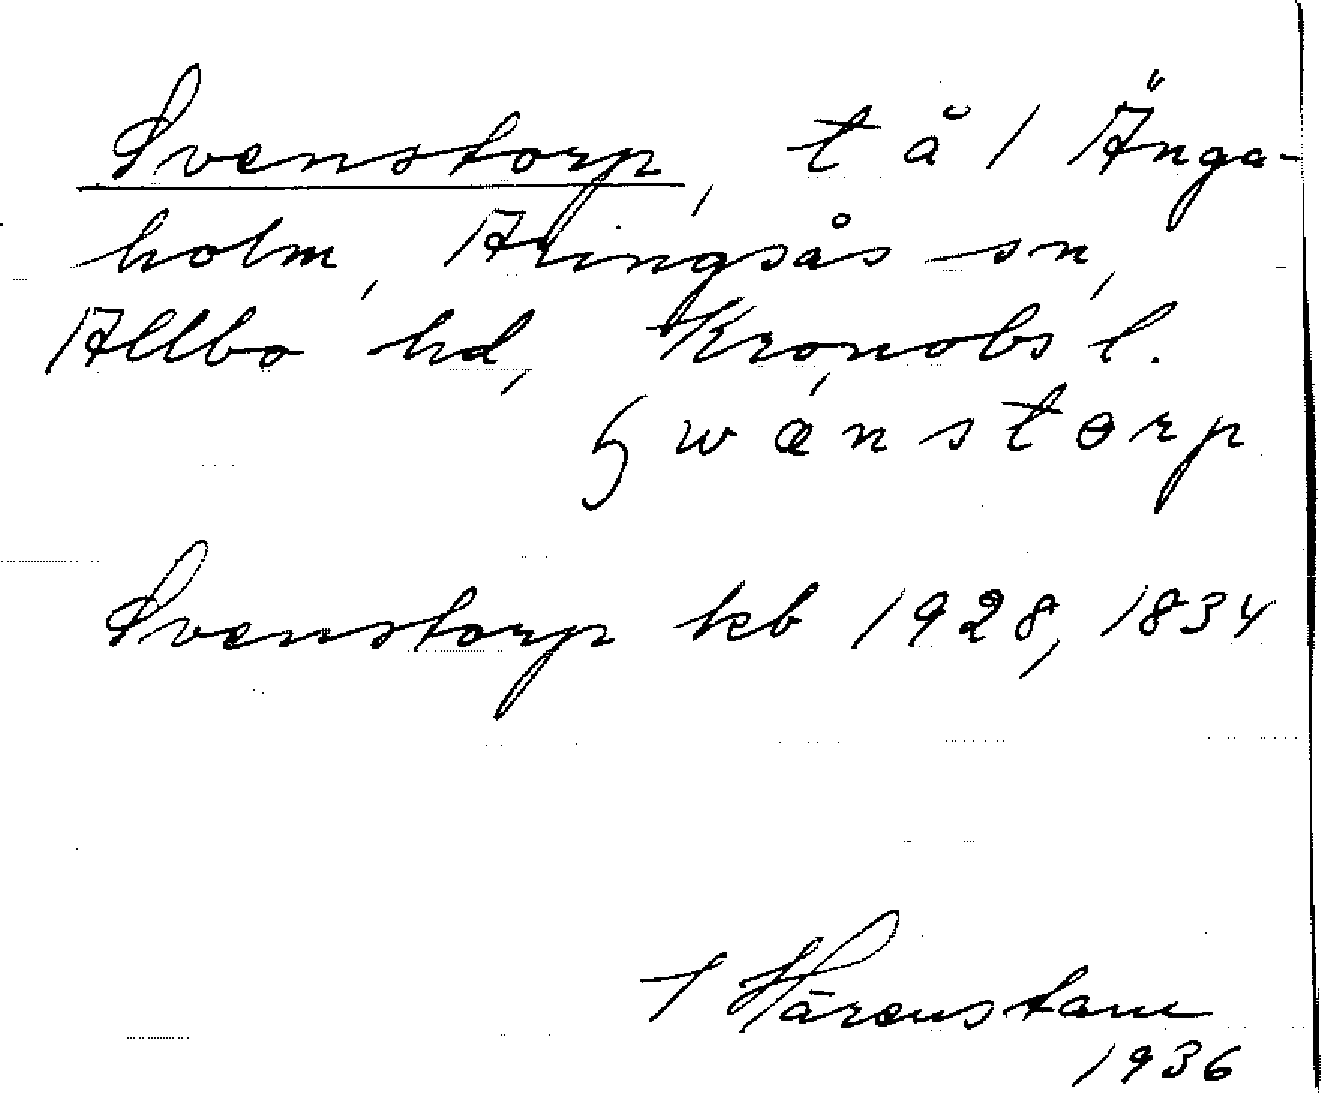 Svenstorp, t å 1 Änga-
holm, Aringsås sn,
Allbo hd, Kronobs l.
ʂwänstorp
Svenstorp kb 1928, 1834
T Härenstam
1936